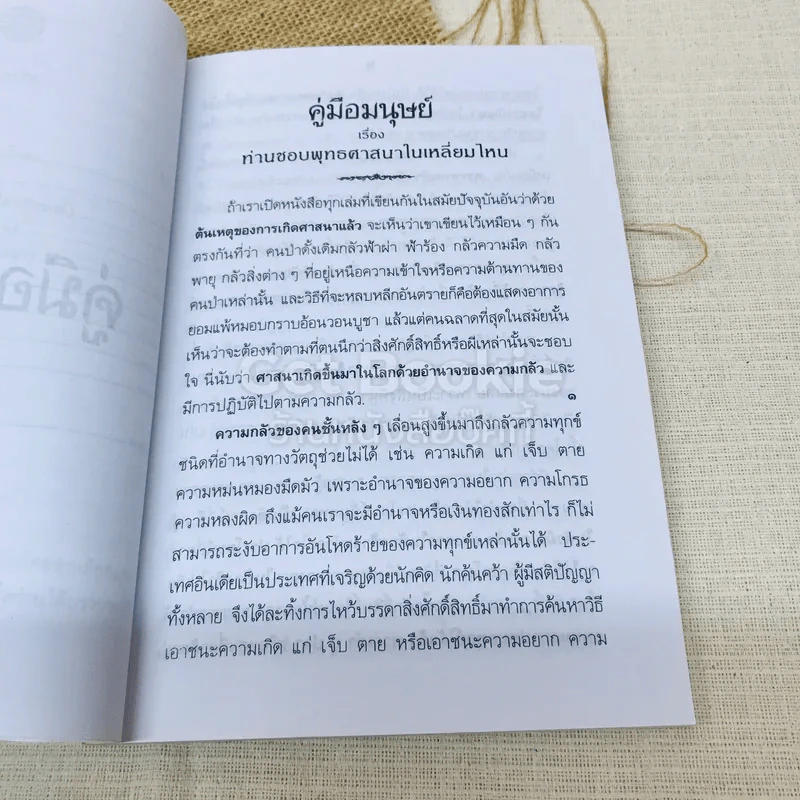 คู่มือมนุษย์
เรื่อง
ท่านชอบพุทธศาสนาในเหลี่ยมไหน
ถ้าเราเปิดหนังสือทุกเล่มที่เขียนกันในสมัยปัจจุบันอันว่าด้วย
ต้นเหตุของการเกิดศาสนาแล้ว จะเห็นว่าเขาเขียนไว้เหมือน ๆ กัน
ตรงกันที่ว่า คนป่าดั้งเดิมกลัวฟ้าผ่า ฟ้าร้อง กลัวความมืด กลัว
พายุ กลัวสิ่งต่าง ๆ ที่อยู่เหนือความเข้าใจหรือความต้านทานของ
คนป่าเหล่านั้น และวิธีที่จะหลบหลีกอันตรายก็คือต้องแสดงอาการ
ยอมแพ้หมอบกราบอ้อนวอนบูชา แล้วแต่คนฉลาดที่สุดในสมัยนั้น
เห็นว่าจะต้องทำตามที่ตนนึกว่าสิ่งศักดิ์สิทธิ์หรือผีเหล่านั้นจะชอบ
ใจ นี่นับว่า ศาสนาเกิดขึ้นมาในโลกด้วยอำนาจของความกลัว และ
มีการปฏิบัติไปตามความกลัว. ๑
ความกลัวของคนชั้นหลัง ๆ เลื่อนสูงขึ้นมาถึงกลัวความทุกข์
ชนิดที่อำนาจทางวัตถุช่วยไม่ได้ เช่น ความเกิด แก่ เจ็บ ตาย
ความหม่นหมองมืดมัว เพราะอำนาจของความอยาก ความโกรธ
ความหลงผิด ถึงแม้คนเราจะมีอำนาจหรือเงินทองสักเท่าไร ก็ไม่
สามารถระงับอาการอันโหดร้ายของความทุกข์เหล่านั้นได้ ประ-
เทศอินเดียเป็นประเทศที่เจริญด้วยนักคิด นักค้นคว้า ผู้มีสติปัญญา
ทั้งหลาย จึงได้ละทิ้งการไหว้บรรดาสิ่งศักดิ์สิทธิ์มาทำการค้นหาวิธี
เอาชนะความเกิด แก่ เจ็บ ตาย หรือเอาชนะความอยาก ความ
Get Bookie
ร้านหนังสือบุ๊คกี้